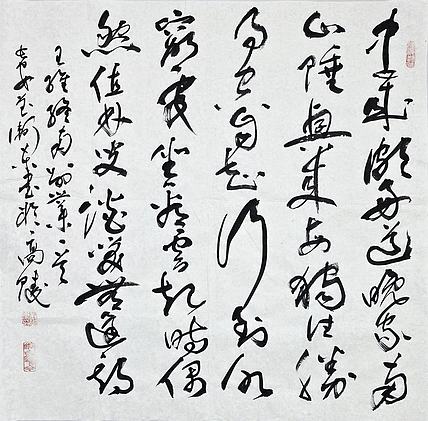 中歲頗好道晚家南
山陲興來每獨往勝
事空自知行到水
窮處坐看雲起時偶
然值林叟談笑無還期
王維終南別業一首
書於高陵